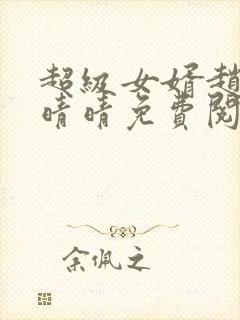 超級女婿趙
晴晴免費閱
余佩之